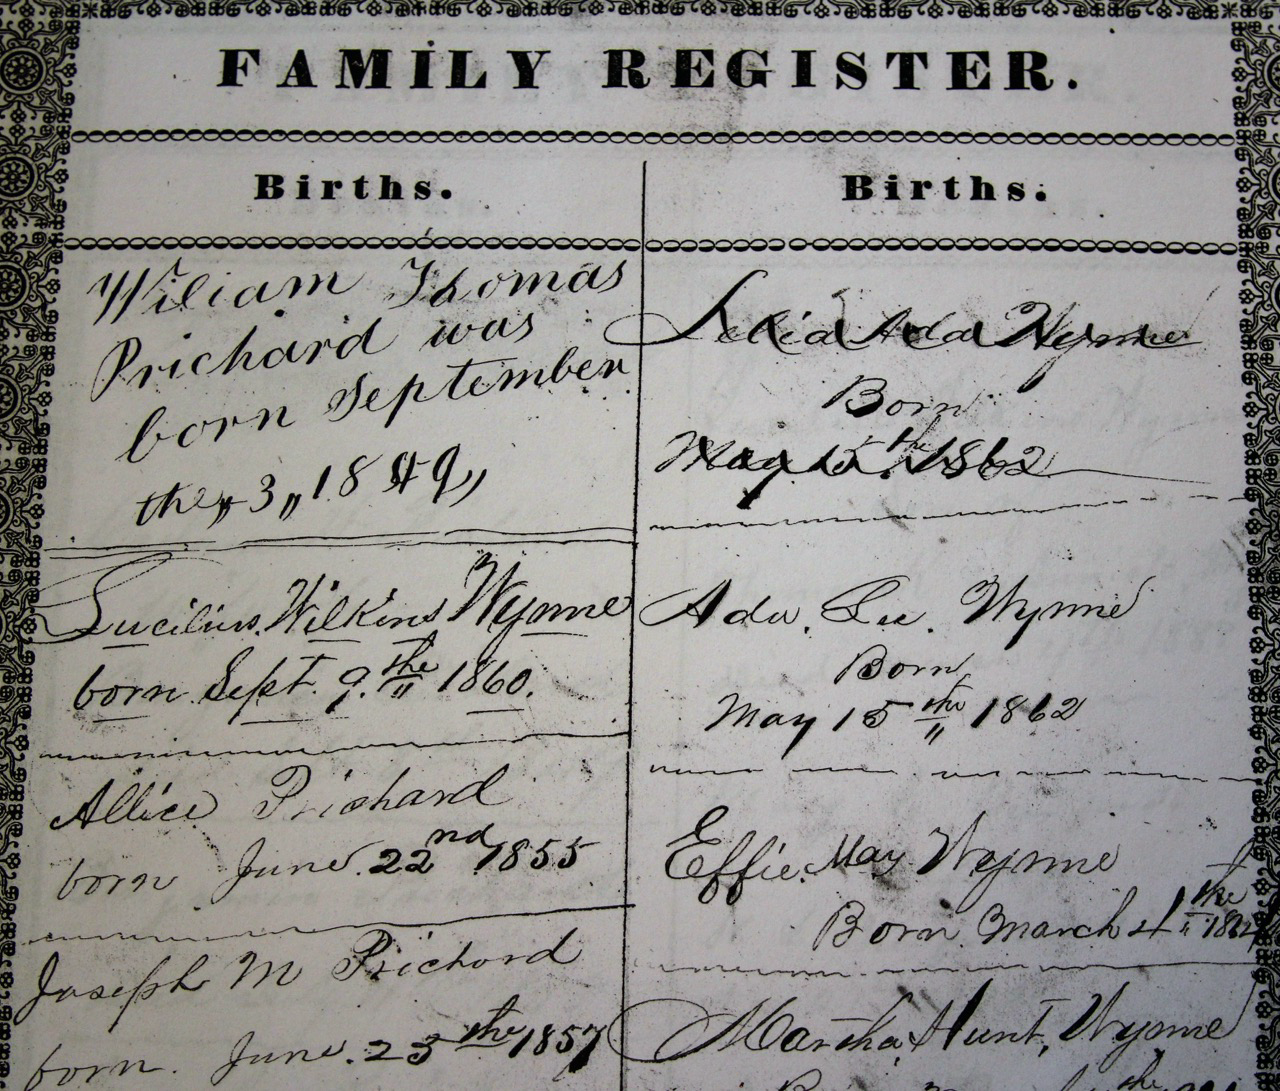 FAMILY REGISTER.
Births.
William Thomas
Prichard was
born September
the „ 3 „ 1849 „
Lucilius. Wilkins Wynne
born Sept. 9.the 1860.
Allice Prichard
born June. 22nd 1855
Joseph M Prichard
born. June. 23the 1857
Births.
Ada Wynne
Born
May 15.the 1862
Ada. Lee. Wynne
Born
May 15the 1862
Effie. May Wynne
Born. March 4the
Martha. Hunt, Wynne